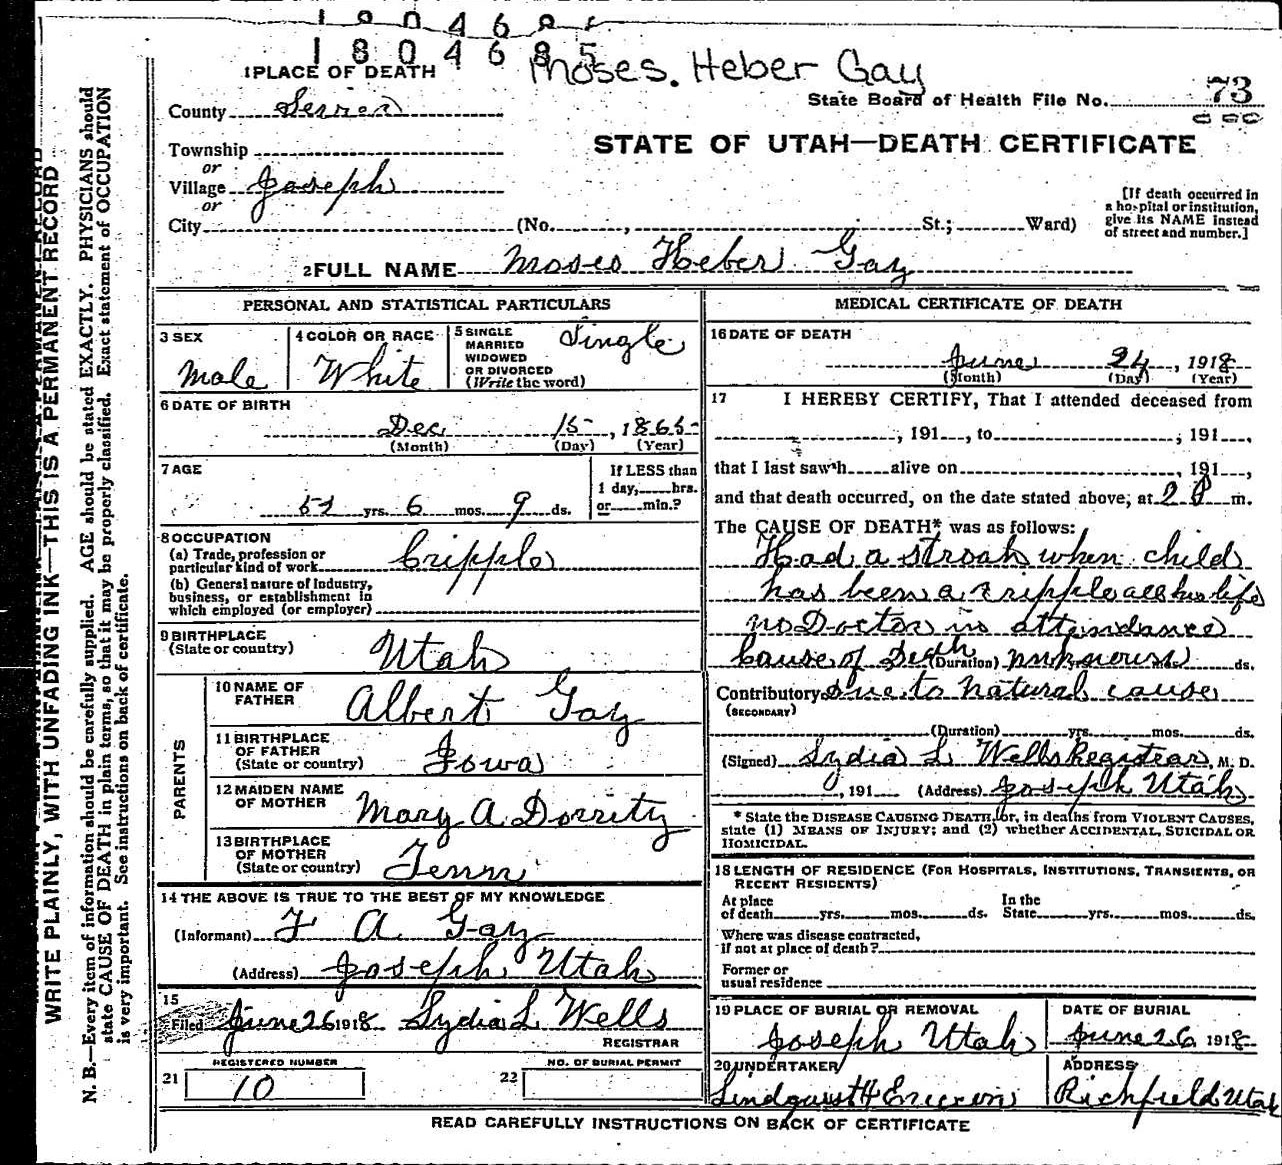 1804685
1 PLACE OF DEATH
Moses. Heber Gay
State Board of Health File No. 73
County Sevier
STATE OF UTAH—DEATH CERTIFICATE
Township
or
Village Joseph
or
City (No. , St.; Ward)
[If death occurred in
a hospital or institution,
give its NAME instead
of street and number.]
2 FULL NAME Moses Heber Gay
PERSONAL AND STATISTICAL PARTICULARS
3 SEX
Male
4 COLOR OR RACE
White
5 SINGLE
MARRIED
WIDOWED
OR DIVORCED
(Write the word)
Single
6 DATE OF BIRTH
Dec 15, 1865
(Month) (Day) (Year)
7 AGE
52 yrs. 6 mos. 9 ds.
If LESS than
1 day, hrs.
or min.?
8 OCCUPATION
(a) Trade, profession or
particular kind of work Cripple
(b) General nature of Industry,
business, or establishment in
which employed (or employer)
9 BIRTHPLACE
(State or country) Utah
PARENTS
10 NAME OF
FATHER Albert Gay
11 BIRTHPLACE
OF FATHER
(State or country) Iowa
12 MAIDEN NAME
OF MOTHER Mary A Dorrity
13 BIRTHPLACE
OF MOTHER
(State or country) Tenn
14 THE ABOVE IS TRUE TO THE BEST OF MY KNOWLEDGE
(Informant) F A Gay
(Address) Joseph Utah
15
Filed June 26 1918 Lydia L Wells
REGISTRAR
REGISTERED NUMBER
21 10
NO. OF BURIAL PERMIT
22
MEDICAL CERTIFICATE OF DEATH
16 DATE OF DEATH
June 24, 1918
(Month) (Day) (Year)
17 I HEREBY CERTIFY, That I attended deceased from
, 191 , to , 191 ,
that I last saw h alive on , 191 ,
and that death occurred, on the date stated above, at 2 P m.
The CAUSE OF DEATH* was as follows:
Had a stroak when child
has been a cripple all his life
no Doctor in attendance
Cause of Death (Duration) unknown ds.
Contributory due to natural cause
(SECONDARY)
(Duration) yrs. mos. ds.
(Signed) Lydia L Wells Registrar, M. D.
, 191 (Address) Joseph Utah
* State the DISEASE CAUSING DEATH, or, in deaths from VIOLENT CAUSES,
state (1) MEANS OF INJURY; and (2) whether ACCIDENTAL, SUICIDAL OR
HOMICIDAL.
18 LENGTH OF RESIDENCE (FOR HOSPITALS, INSTITUTIONS, TRANSIENTS, OR
RECENT RESIDENTS)
At place
of death yrs. mos. ds.
In the
State yrs. mos. ds.
Where was disease contracted,
if not at place of death?
Former or
usual residence
19 PLACE OF BURIAL OR REMOVAL
Joseph Utah
DATE OF BURIAL
June 26 1918
20 UNDERTAKER
Lindquist
ADDRESS
Richfield Utah
READ CAREFULLY INSTRUCTIONS ON BACK OF CERTIFICATE
WRITE PLAINLY, WITH UNFADING INK—THIS IS A PERMANENT RECORD
N. B.—Every item of information should be carefully supplied. AGE should be stated EXACTLY. PHYSICIANS should
state CAUSE OF DEATH in plain terms, so that it may be properly classified. Exact statement of OCCUPATION
is very important. See instructions on back of certificate.